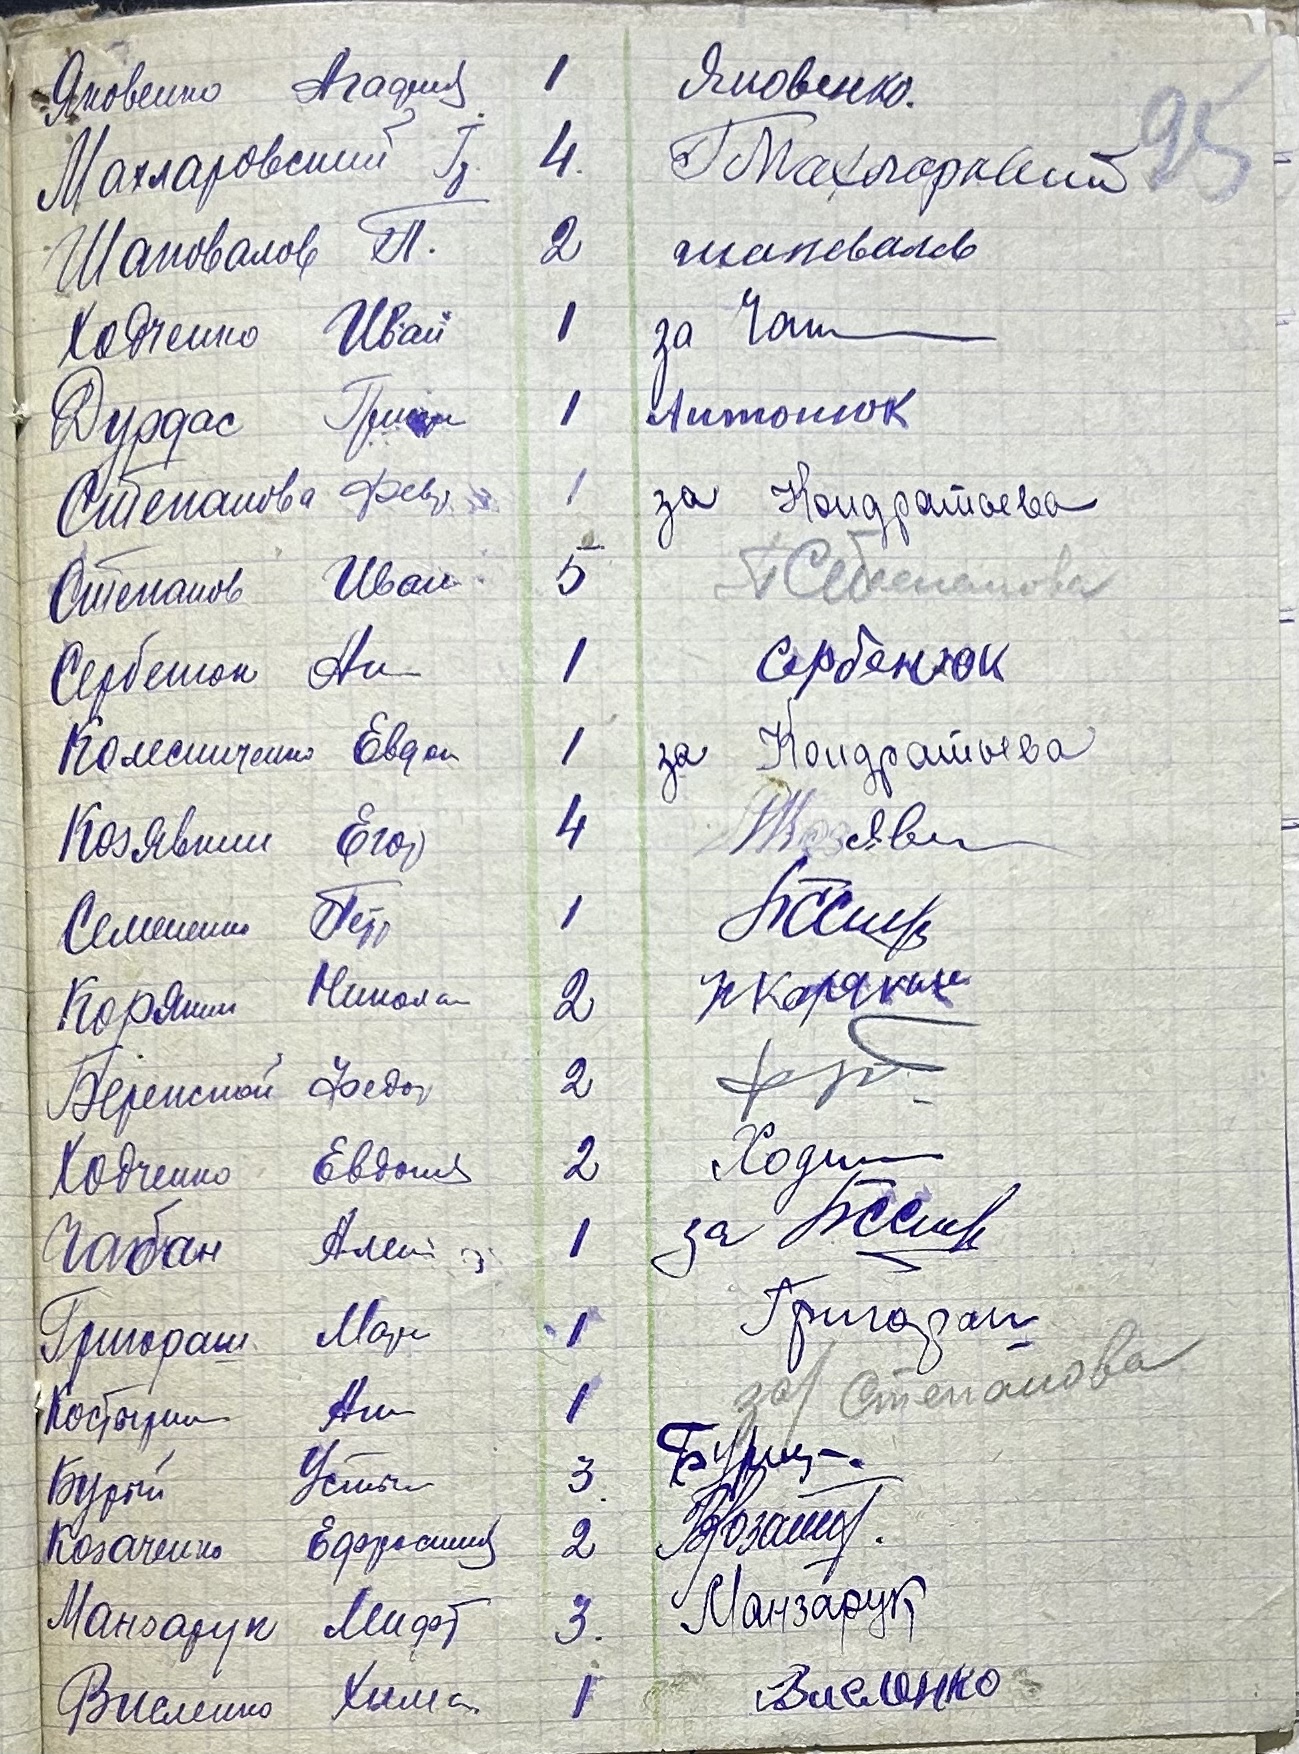 95
Яковенко Агафия 1 Яковенко.
Махларовский Гр. 4. ГМахларовский
Шаповалов П. 2 шаповалов
Ходченко Иван 1 за
Дурдас Григор 1 Антонюк
Степанова Февр 1 за Кондратьева
Степанов Иван 5 Степанова
Сербенюк Ан 1 Сербенюк
Колесниченко Евдок 1 за Кондратьева
Козявкин Егор 4 Козяв
Семененко Петр 1
Корякин Николай 2 НКорякин
Беренской Федор 2
Ходченко Евдокия 2 Ходч
Чабан Алек 1 за
Григораш Мари 1 Григораш
Костырки Ан 1 за Степанова
Бурый Устин 3. Бурий
Козаченко Ефросиния 2
Манзарук Миф 3. Манзарук
Висленко Хима 1 Висленко